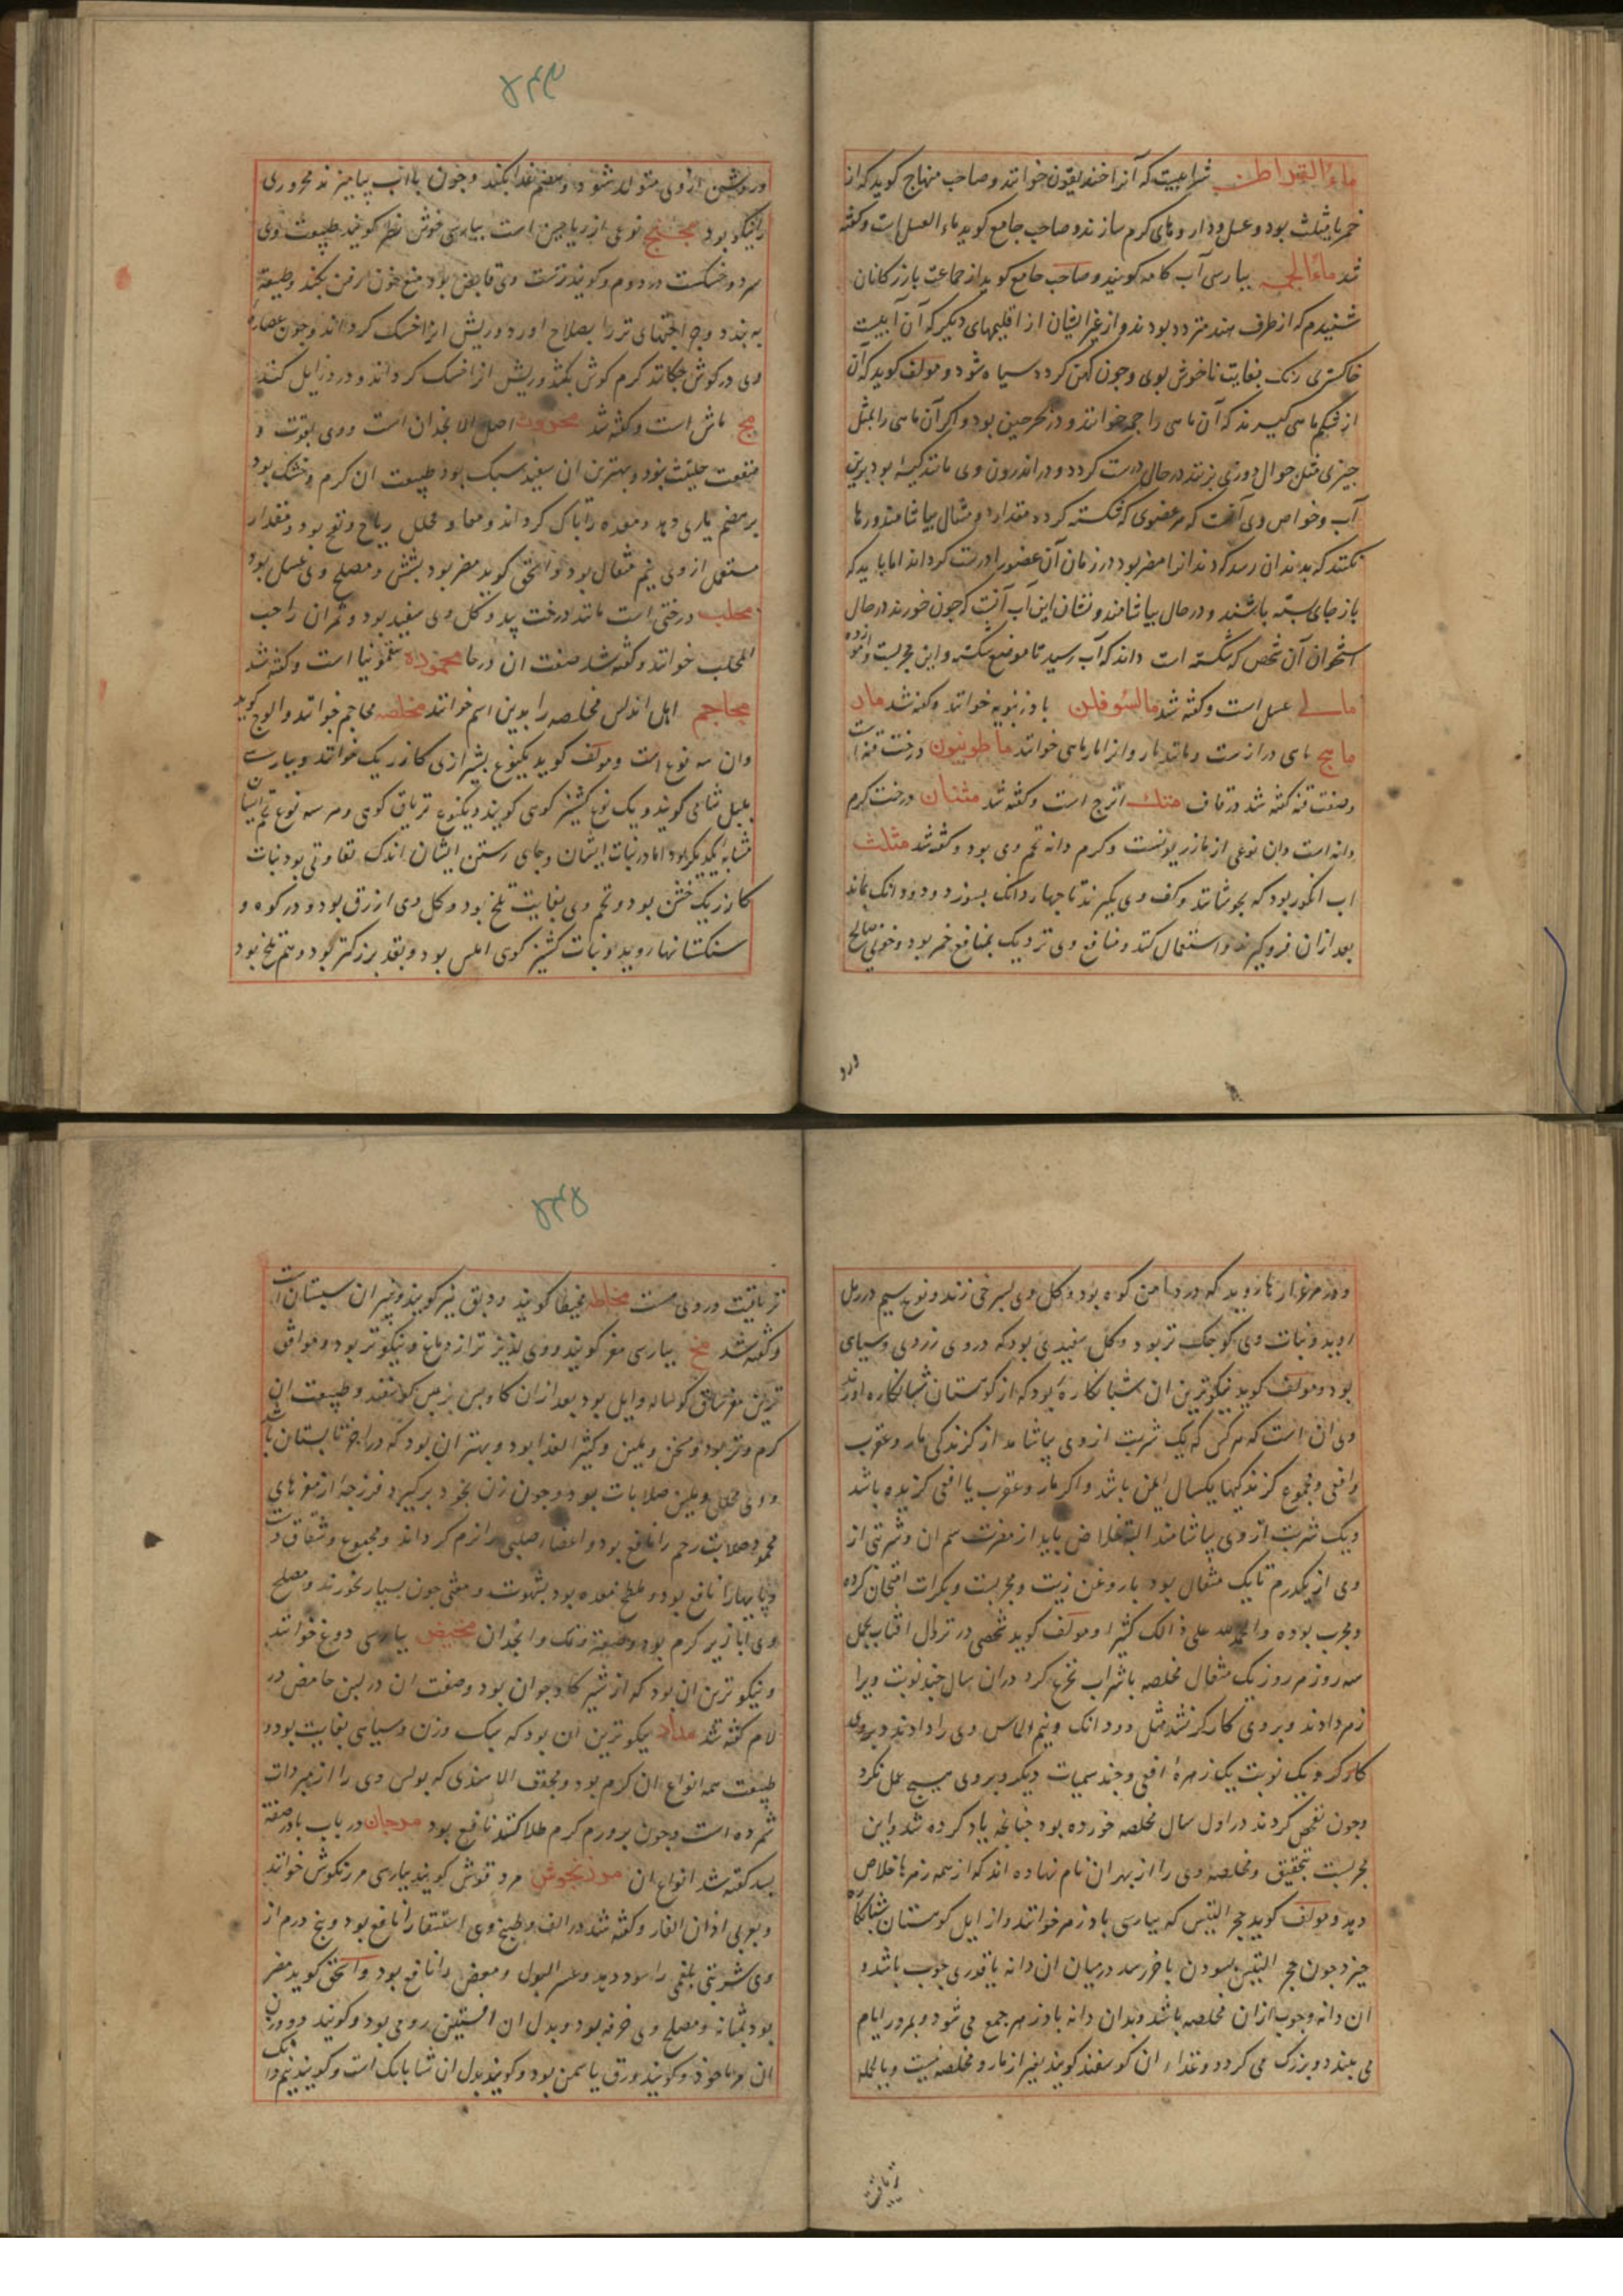 ماء القراطن شرابیست که آنرا خندیقون خوانند و صاحب منهاج کوید که از
خمر یا مثلث بود و عسل و داروهای کرم سازند و صاحب جامع کوید ماء العسل است و کفته
شد ماء الجمه بپارسی آب کامه کویند و صاحب جامع کوید از جماعت بازرکانان
شنیدم که از طرف هند متردد بودند و از غیر ایشان از اقلیمهای دیکر که آن آبیست
خاکستری رنک بغایت ناخوش بوی و چون کهن کردد سیاه شود و مولف کوید که آن
از شکم ماهی کیرند که آن ماهی را جمه خوانند و در بحر چین بود و اکر آن ماهی را بمثل
چیزی مثل جوال دوزی بزنند در حال درست کردد و در اندرون وی مانند کیسه بود بدین
آب و خواص وی آنست که هر عضوی که شکسته کردد مقدار دو مثقال بیاشامند و رها
نکنند که بدندان رسد که دندانرا مضر بود در زمان آن عضو را درست کرداند اما باید که
باز جای بسته باشند و در حال بیاشامند و نشان این آب آنست که چون خورند در حال
استخوان آن شخص که شکسته است داند که آب رسید تا موضع شکسته و این مجربست و آزموده
مالی عسل است و کفته شد مالسوفلن بادرنبویه خوانند و کفته شد مار
ماهیج ماهی درازست و مانند مار و انرا مارماهی خوانند ماطونیون درخت قنه است
و صفت قنه کفته شد در قاف متک اترج است و کفته شد مثنان درخت کرم
دانه است و ان نوعی از مازریونست و کرم دانه تخم وی بود و کفته شد مثلث
اب انکور بود که بجوشانند و کف وی بکیرند تا چهار دانک بسوزد و دو دانک بماند
بعد ازان فروکیرند و استعمال کنند و منافع وی نزدیک بمنافع خمر بود و خونی صالح
ورو
۵۳۴
و روشن ازوی متولد شود و هضم غذا بکند و چون با آب بیامیزند محروری
را نیکو بود مجنج نوعی از ریاحین است بپارسی خوش نظر کویند طبیعت وی
سرد و خشکست در دوم و کویند ترست وی قابض بود منع خون رفتن بکند و طبیعت
به بندد و جراحتهای تر را بصلاح اورد و ریش انرا خشک کرداند و چون عصاره
وی در کوش چکانند کرم کوش بکشد و ریش انرا خشک کرداند و درد زایل کند
مج ماش است و کفته شد محروت اصل الانجدان است و وی بقوت و
منفعت حلتیت بود و بهترین ان سفید سبک بود طبیعت ان کرم و خشک بود
بر هضم یاری دهد و معده را پاک کرداند و معا و محلل ریاح و نفخ بود و مقدار
مستعمل از وی نیم مثقال بود و اسحق کوید مضر بود بشش و مصلح وی عسل بود
محلب درختی است مانند درخت بید و کل وی سفید بود و ثمر ان را حب
المحلب خوانند و کفته شد صفت ان در حا محموده سقمونیا است و کفته شد
محاجم اهل اندلس مخلصه را بدین اسم خوانند مخلصه محاجم خوانند و الوج کویند
و ان سه نوع است و مولف کوید یکنوع بشیرازی کازریک خوانند و بپارسی
بلبل شامی کویند و یک نوع کشنیز کوهی کویند و یکنوع تریاق کوهی و هر سه نوع تخم ایشان
مشابه یکدیکر بود اما در نبات ایشان و جای رستن ایشان اندک تفاوتی بود نبات
کازریک خشن بود و تخم وی بغایت تلخ بود و کل وی ازرق بود و در کوه و
سنکستانها روید و نبات کشنیز کوهی املس بود و بقد بزرکتر بود و هم تلخ بود
و در مرغزارها روید که در دامن کوه بود و کل وی بسرخی زند و نوع سیم در رمل
روید و نبات وی کوچک تر بود و کل سفیدی بود که در وی زردی و سیاهی
بود و مولف کوید نیکوترین ان شبانکاره بود که از کوهستان شبانکاره آورند
وی ان است که هر کس که یک شربت از وی بیاشامد از کزندکی مار و عقرب
و افعی و مجموع کزندکیها یکسال ایمن باشد و اکر مار و عقرب یا افعی کزیده باشد
و یک شربت از وی بیاشامند البته خلاص یابد از مضرت سم ان و شربتی از
وی از یکدرم تا یک مثقال بود با روغن زیت و مجربست و بکرات امتحان کرده
و مجرب بوده و الحمد لله علی ذالک کثیرا و مولف کوید شخصی در نزول افتاب بحمل
سه روز هر روز یک مثقال مخلصه با شراب تجرع کرد در ان سال چند نوبت ویرا
زهر دادند و بر وی کارکر نشد مثل دو دانک و نیم الماس وی را دادند و بر وی
کار نکرد و یک نوبت یک زهره افعی و چند سمیات دیکر و بر وی هیچ عمل نکرد
و چون تفحص کردند در اول سال مخلصه خورده بود چنانچه یاد کرده شد و این
مجربست بتحقیق و مخلصه وی را از بهر ان نام نهاده اند که از همه زهرها خلاص
دهد و مولف کوید حجر التیس که بپارسی پادزهر خوانند و از ایل کوهستان شبانکاره
خیزد چون حجر التیس بسودن با خر رسد درمیان ان دانه یا قدری چوب باشد و
ان دانه و چوب ازان مخلصه باشد و بدان دانه پادزهر جمع می شود و بمرور ایام
می بندد و بزرک می کردد و غذاء ان کوسفند کویند بغیر از مار و مخلصه نیست و بالجمله
تریاقیت
۵۳۵
تریاقیت در وی هست مخاطه مخیطا کویند و دبق نیز کویند و نیز ان سپستان است
و کفته شد مخ بپارسی مغز کویند و وی لذیذ تر از دماغ و نیکوتر بود و موافق
ترین مغز ساق کوساله و ایل بود بعد ازان کاو پس بز پس کوسفند و طبیعت ان
کرم و تر بود و مسخن و ملین و کثیر الغذا بود و بهتر ان بود که در اخر تابستان باشد
و وی محلل و ملین صلابات بود و چون زن بخود برکیرد فرزجه از مغزهای
محمود صلابت رحم را نافع بود و اعضاء صلب را نرم کرداند و مجموع و شقاق دست
و پایها را نافع بود و ملطخ معده بود بشهوت و مغثی چون بسیار خورند و مصلح
وی ابازیر کرم بود و صعتر و نمک و انجدان مخیض بپارسی دوغ خوانند
و نیکو ترین ان بود که از شیر کاو جوان بود و صفت ان در لبن حامض در
لام کفته شد مداد نیکو ترین ان بود که سبک وزن و سیاهی بغایت بود و
طبیعت همه انواع ان کرم بود و مجفف الا هندی که بولس وی را از مبردات
شمرده است و چون بر ورم کرم طلا کنند نافع بود مرجان در باب با در صفت
بسد کفته شد انواع ان مرزنجوش مردقوش کویند بپارسی مرزنکوش خوانند
و بعربی اذان الفار و کفته شد در الف و طبیخ وی استسقا را نافع بود و پنج درم از
وی شربتی بلغمی را سود دهد و عسر البول و مغص را نافع بود و اسحق کوید مضر
بود بمثانه و مصلح وی خرفه بود و بدل ان افسنتین رومی بود و کویند دو وزن
ان مرماحوز و کویند ورق یاسمن بود و کویند بدل ان شابانک است و کویند نیم دانک